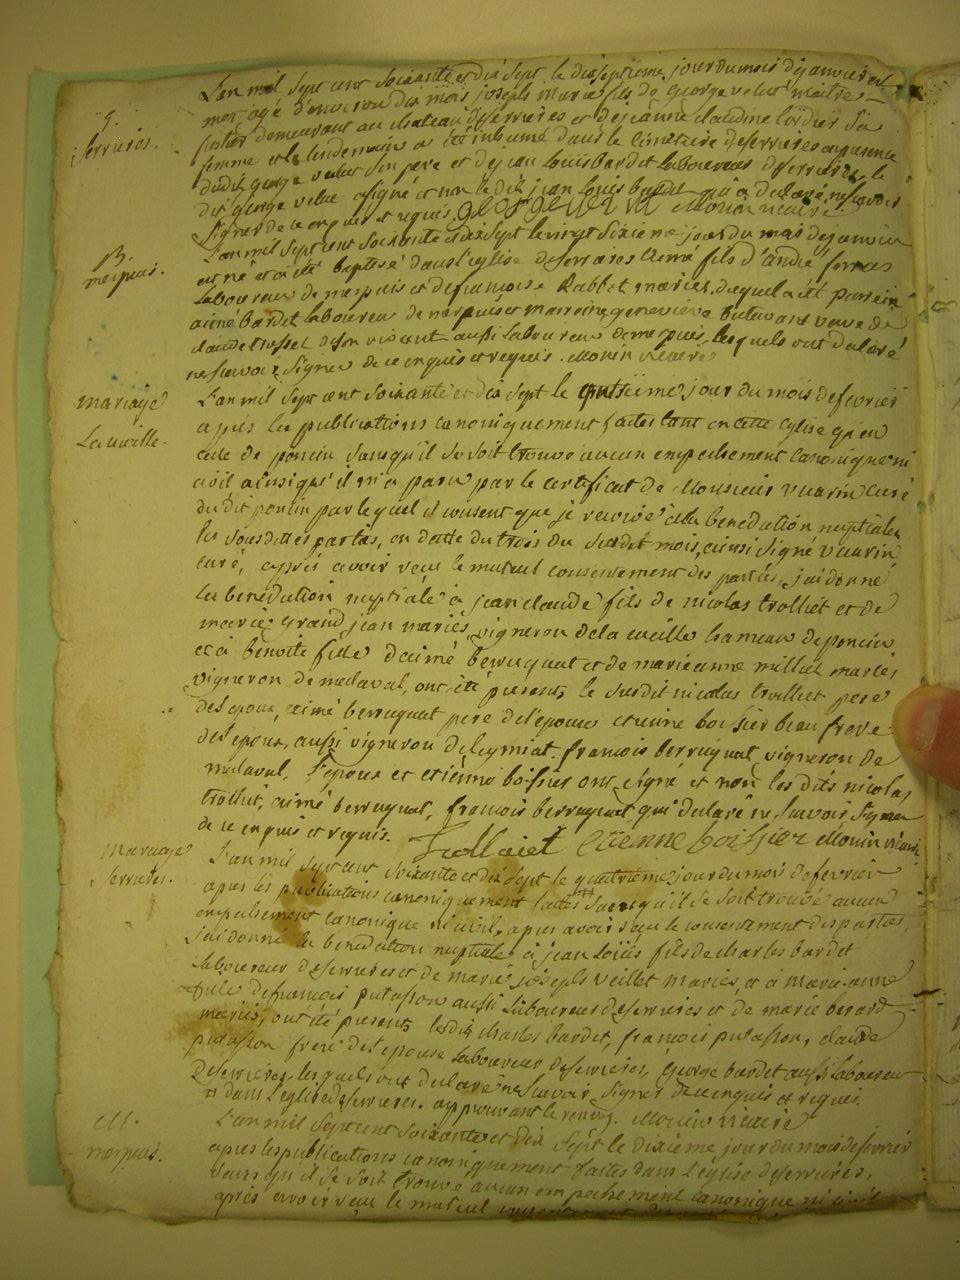 L'an mil sept cent soixante et dix sept le dixseptieme jour du mois de janvier est
mort agé d'environ dix mois joseph marie fils de George velut maitre
demeurant au chateau de serrieres et de jeanne claudine
femme et le lendemain a été inhumé dans le cimetiere de serrieres en presence
dudit george velut son pere et de jean Louis bardet laboureur de serrieres, le
dit george velut a signé et non le dit jean Louis bardet qui a declaré ne scavoir
signer de ce enquis et requis. george velut Morin vicaire
S.
serrieres.
L'an mil sept cent soixante et dix sept le vingt sixieme jour du mois de janvier
est né et a été baptisé dans l'eglise de serrieres aimé fils d'andré
laboureur de merpuis et de francoise Rabbot mariés, duquel a été parrein
aimé bardet laboureur de merpuis et marreine genevieve veuve de
claude de son vivant aussi laboureur de merpuis, lesquels ont declaré
ne scavoir signer de ce enquis et requis. Morin vicaire
B.
merpuis.
L'an mil sept cent soixante et dix sept le jour du mois de fevrier
après les publications canoniquement faites tant en cette eglise qu'en
celle de poncin sans qu'il se soit trouvé aucun empechement canonique ni
civil ainsi qu'il m'a paru par le certificat de Monsieur vuarin curé
du dit poncin par lequel il consent que je recoive a la benediction nuptiale
les susdittes parties, en datte du trois du susdit mois, ainsi signé vuarin
curé, après avoir recu le mutuel consentement des parties, j'ai donné
la benediction nuptiale à jean claude fils de nicolas trolliet et de
marie grand jean mariés, vigneron de la cueille hameau de poncin
et à benoite fille d'aimé berruquat et de marie anne milliet mariés
vigneron de malaval, ont été presents le susdit nicolas trolliet pere
de l'epoux, aimé berruquat pere de l'epouse etienne boissier beau frere
de l'epoux, aussi vigneron de leymiat. francois berruquat vigneron de
malaval. l'epoux et etienne boissier ont signé et non les dits nicolas
trolliet, aimé berruquat, francois berruquat qui declaré ne scavoir signer
de ce enquis et requis. trolliet etienne boissier Morin vicaire
mariage
La cueille.
L'an mil sept cent soixante et dix sept le quatrieme jour du mois de fevrier
apres les publications canoniquement faites # sans qu'il se soit trouvé aucun
empechement canonique ni civil, apres avoir recu le consentement des parties,
j'ai donné la benediction nuptiale à jean Louis fils de charles bardet
laboureur de serrieres et de marie joseph veillet mariés, et à marie anne
fille de francois putasson aussi laboureur de serrieres et de marie berard
mariés, ont été presents lesdits charles bardet, francois putasson, claude
putasson frere de l'epouse laboureur de serrieres, George bardet aussi laboureur
de serrieres, lesquels ont declaré ne scavoir signer de ce enquis et requis.
# dans l'eglise de serrieres. approuvant le renvoy. Morin vicaire
Mariage
serrieres.
L'an mil sept cent soixante et dix sept le dixieme jour du mois de fevrier
apres les publications canoniquement faites dans l'eglise de serrieres,
sans qu'il se soit trouvé aucun empechement canonique ni civil
après avoir recu le mutuel consentement
M.
merpuis.